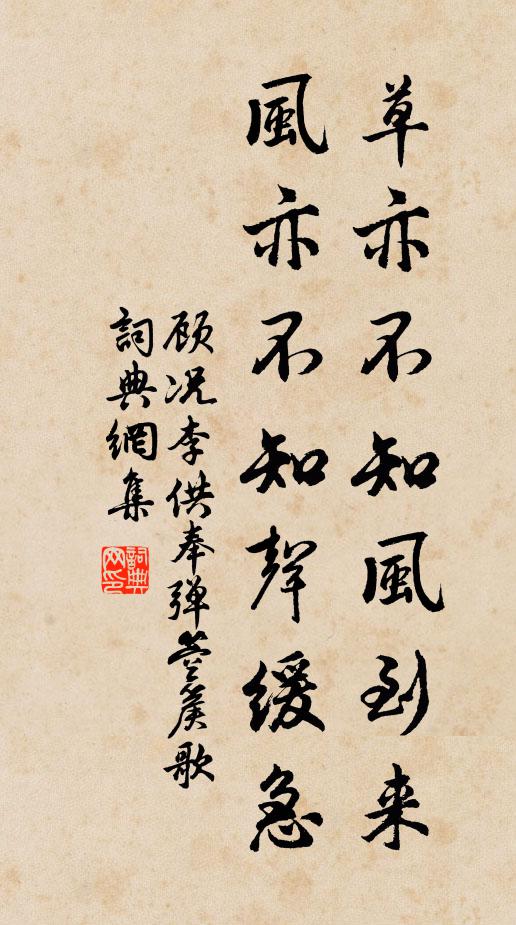 草亦不知風到来
風亦不知聲緩急
顾况李供奉弹箜篌歌
詞典網集
詞典网印